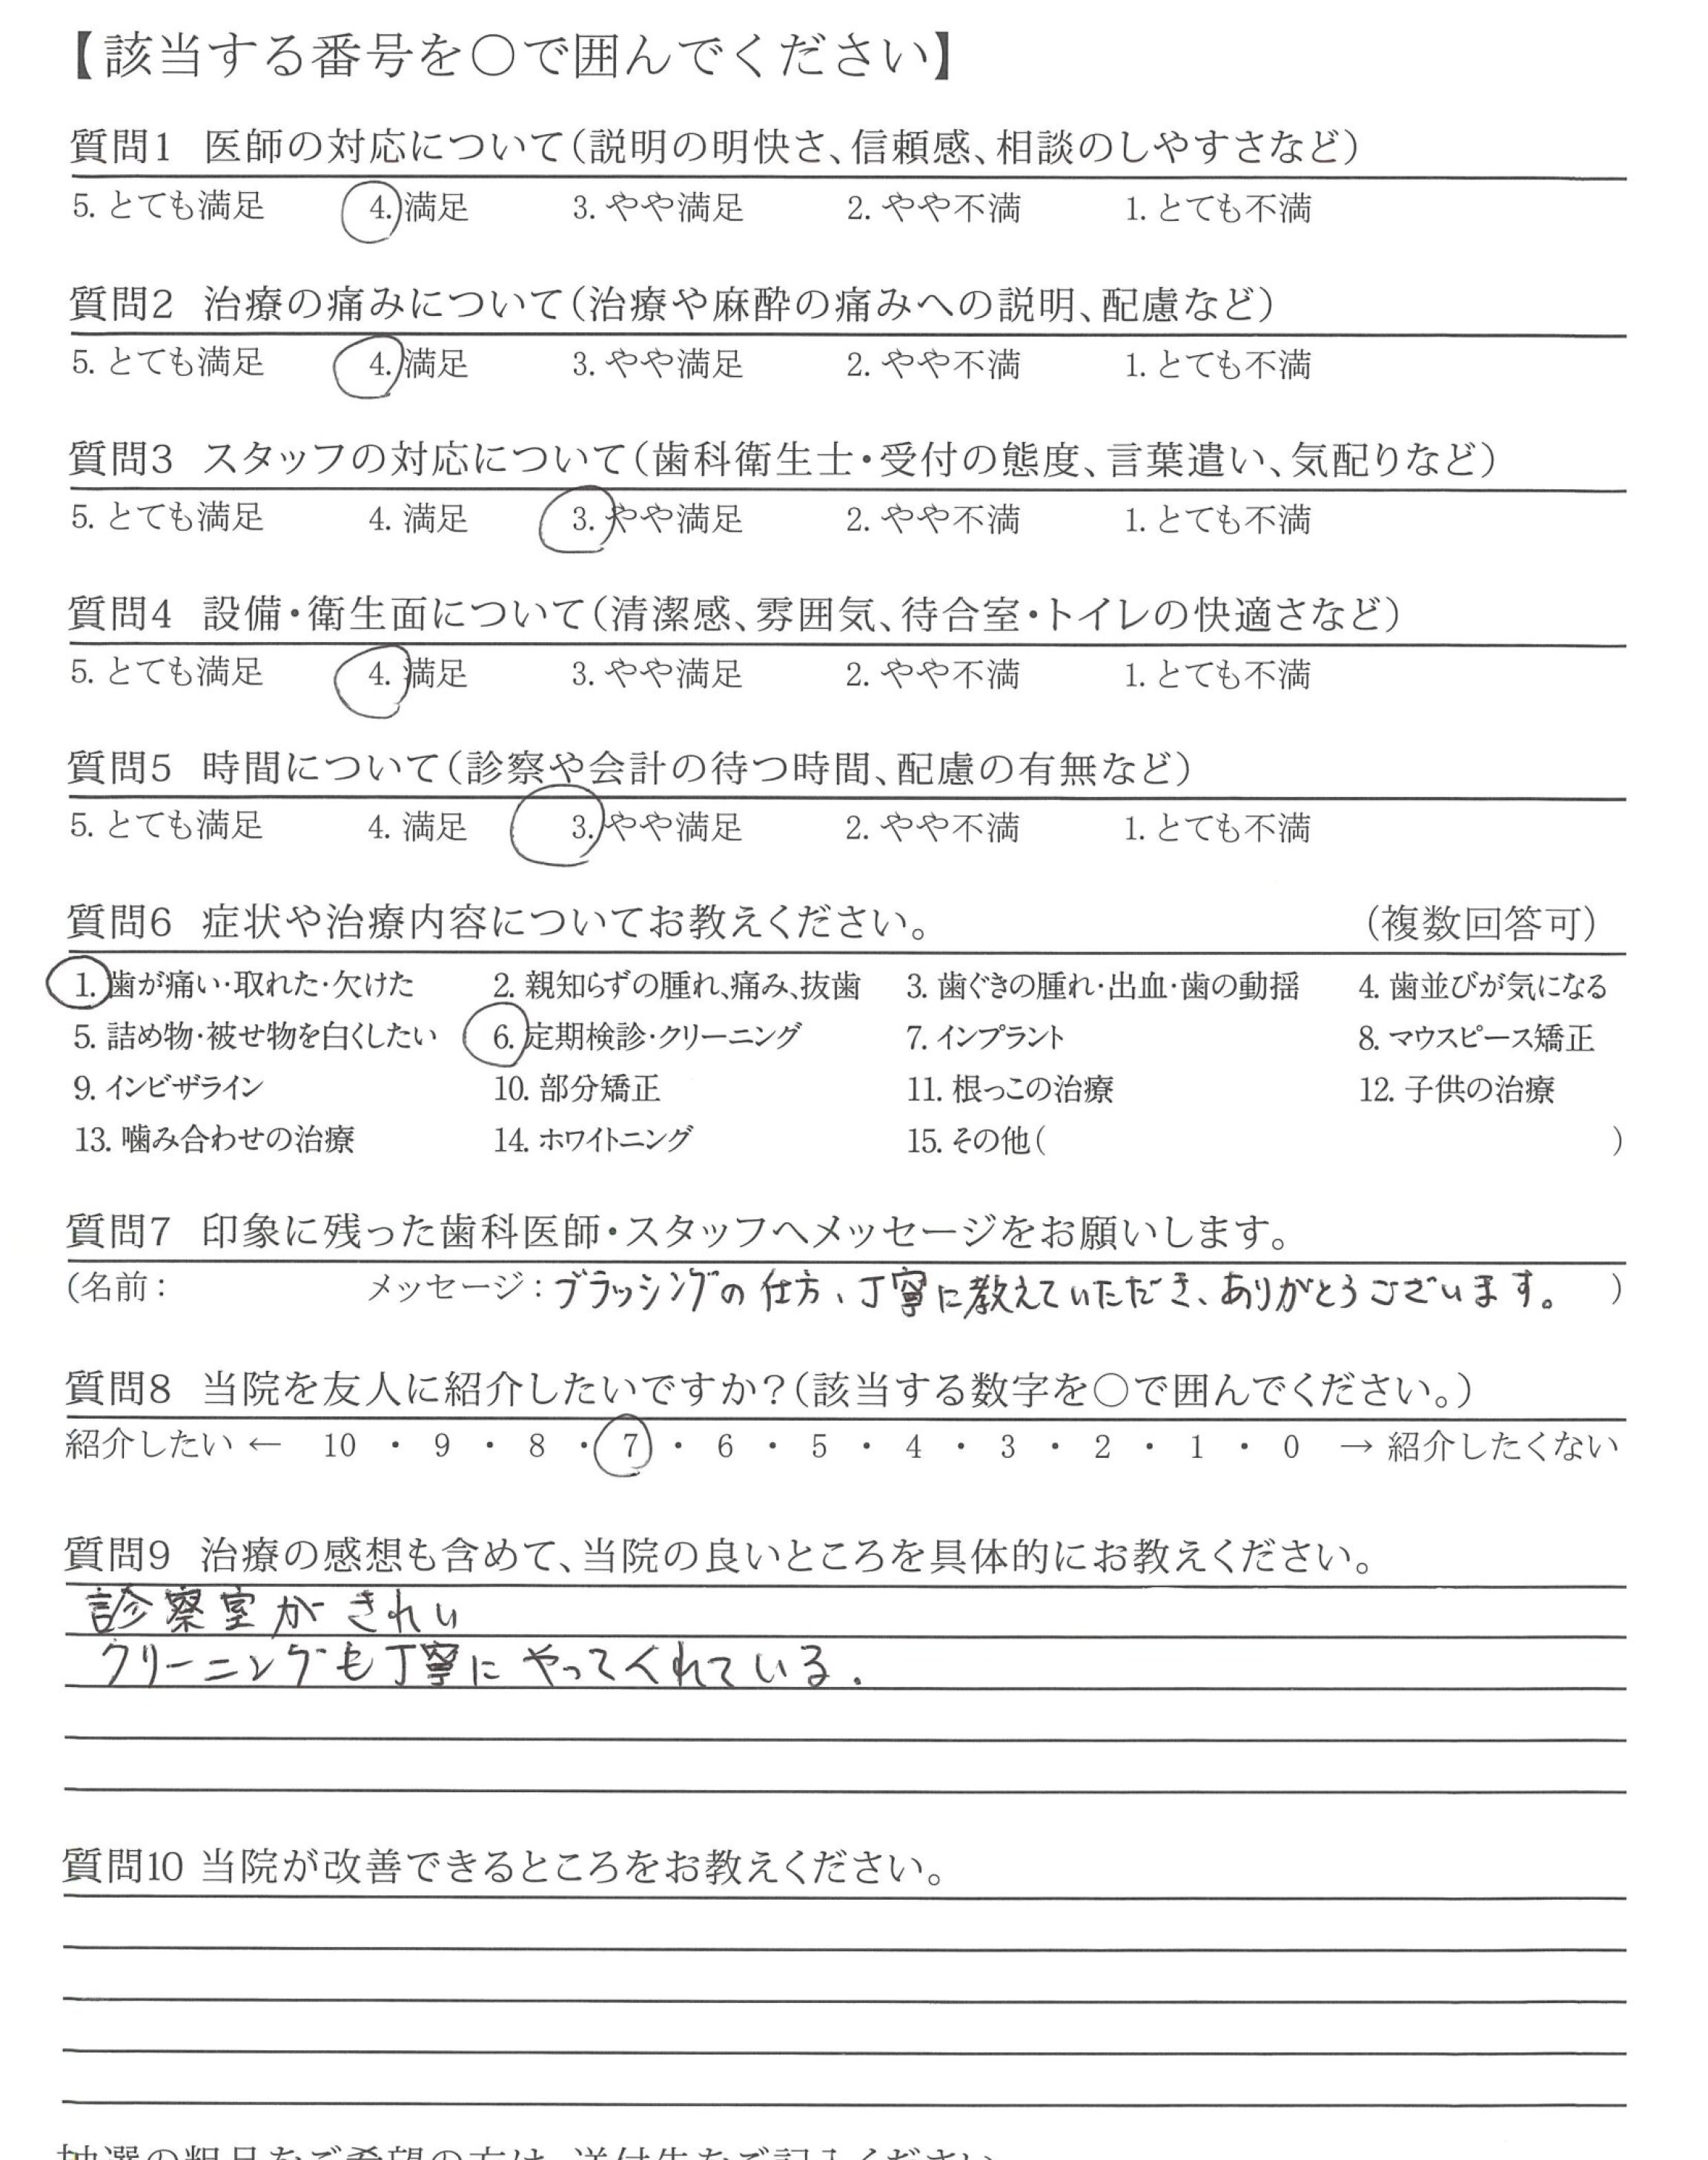 【該当する番号を○で囲んでください】
質問1 医師の対応について(説明の明快さ、信頼感、相談のしやすさなど)
5. とても満足 4. 満足 3. やや満足 2. やや不満 1. とても不満
質問2 治療の痛みについて(治療や麻酔の痛みへの説明、配慮など)
5. とても満足 4. 満足 3. やや満足 2. やや不満 1. とても不満
質問3 スタッフの対応について(歯科衛生士・受付の態度、言葉遣い、気配りなど)
5. とても満足 4. 満足 3. やや満足 2. やや不満 1. とても不満
質問4 設備・衛生面について(清潔感、雰囲気、待合室・トイレの快適さなど)
5. とても満足 4. 満足 3. やや満足 2. やや不満 1. とても不満
質問5 時間について(診察や会計の待つ時間、配慮の有無など)
5. とても満足 4. 満足 3. やや満足 2. やや不満 1. とても不満
質問6 症状や治療内容についてお教えください。 (複数回答可)
1. 歯が痛い・取れた・欠けた 2. 親知らずの腫れ、痛み、抜歯 3. 歯ぐきの腫れ・出血・歯の動揺 4. 歯並びが気になる
5. 詰め物・被せ物を白くしたい 6. 定期検診・クリーニング 7. インプラント 8. マウスピース矯正
9. インビザライン 10. 部分矯正 11. 根っこの治療 12. 子供の治療
13. 噛み合わせの治療 14. ホワイトニング 15. その他( )
質問7 印象に残った歯科医師・スタッフへメッセージをお願いします。
(名前: メッセージ: ブラッシングの仕方、丁寧に教えていただき、ありがとうございます。 )
質問8 当院を友人に紹介したいですか?(該当する数字を○で囲んでください。)
紹介したい ← 10 ・ 9 ・ 8 ・ 7 ・ 6 ・ 5 ・ 4 ・ 3 ・ 2 ・ 1 ・ 0 → 紹介したくない
質問9 治療の感想も含めて、当院の良いところを具体的にお教えください。
診察室がきれい
クリーニングも丁寧にやってくれている.
質問10 当院が改善できるところをお教えください。
抽選の粗品をご希望の方は、送付先をご記入ください